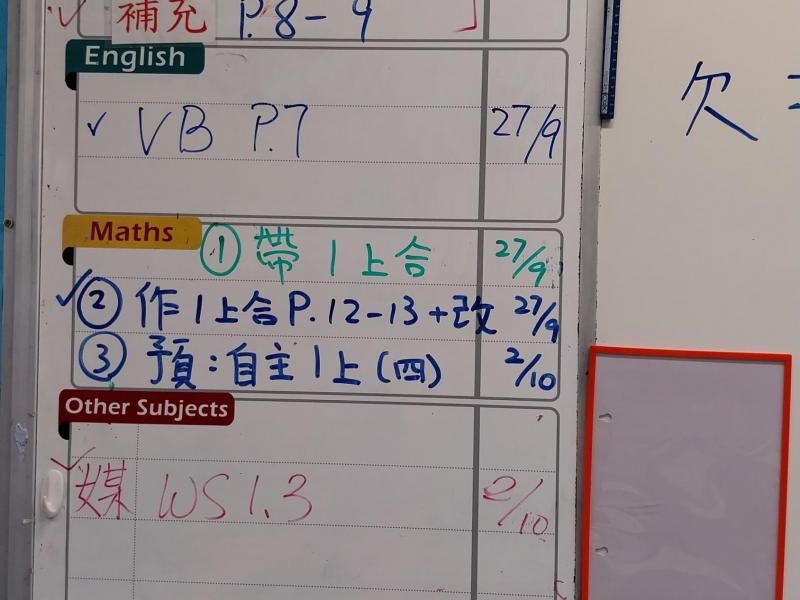 ✓ 補充 P.8-9
English
✓ VB P.7 27/9
Maths
① 帶 1上合 27/9
✓ ② 作 1上合 P.12-13+改 27/9
③ 預:自主1上(四) 2/10
Other Subjects
✓ 媒 WS 1.3 2/10
欠